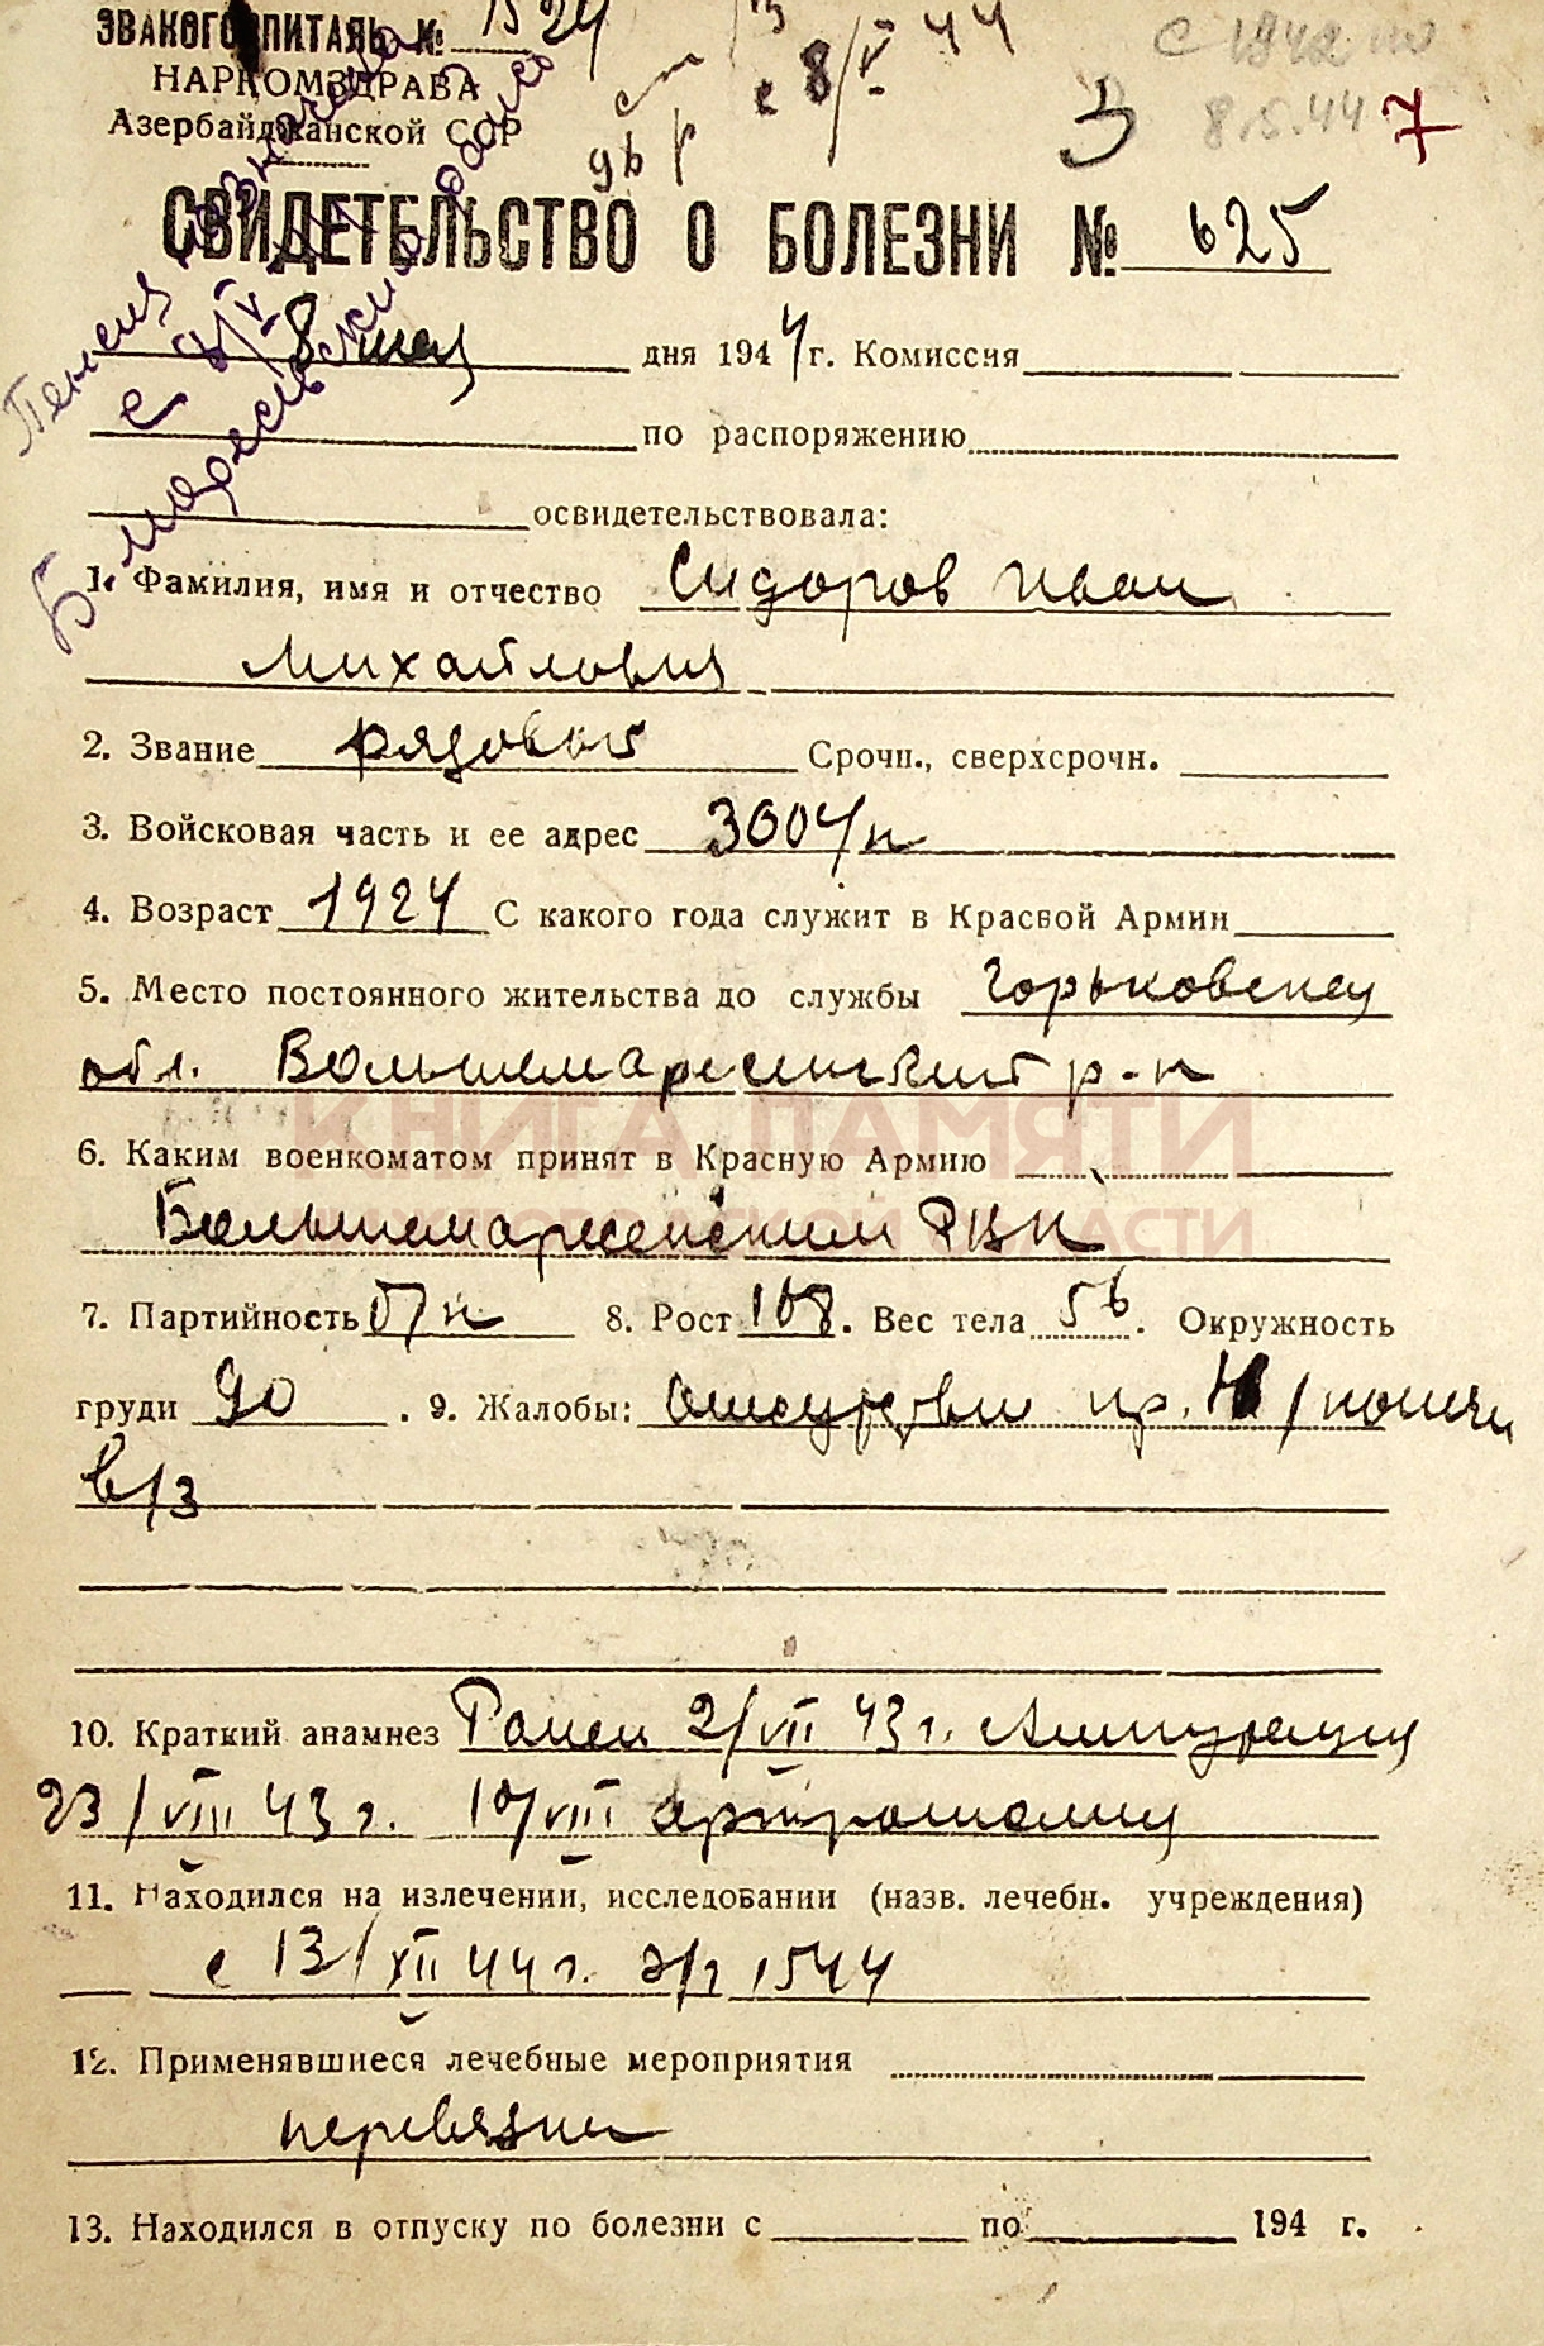 ЭВАКОГОСПИТАЛЬ № 1524
НАРКОМЗДРАВА
Азербайджанской ССР
с 8/V 44
с 1942 по
8.5.44
7
СВИДЕТЕЛЬСТВО О БОЛЕЗНИ № 625
Пенсия назначена
с 8/V
8 мая дня 1944 г. Комиссия
по распоряжению
освидетельствовала:
1. Фамилия, имя и отчество Сидоров Иван
Михайлович
2. Звание рядовой Срочн., сверхсрочн.
3. Войсковая часть и ее адрес 3004/п
4. Возраст 1924 С какого года служит в Красвой Армии
5. Место постоянного жительства до службы Горьковская
обл. Большемаресьевский р-н
КНИГА ПАМЯТИ
6. Каким военкоматом принят в Красную Армию
Большемаресевским РВК
НИЖЕГОРОДСКОЙ ОБЛАСТИ
7. Партийность б/п 8. Рост 168. Вес тела 56. Окружность
груди 90. 9. Жалобы: Отсутствие пр. н/конечн
в/з
10. Краткий анамнез Ранен 2/VII 43 г. Ампутация
23/VIII 43 г. 10/VIII артротомия
11. Находился на излечении, исследовании (назв. лечебн. учреждения)
с 13/XII 44 г. э/г 1544
12. Применявшиеся лечебные мероприятия
перевязки
13. Находился в отпуску по болезни с по 194 г.